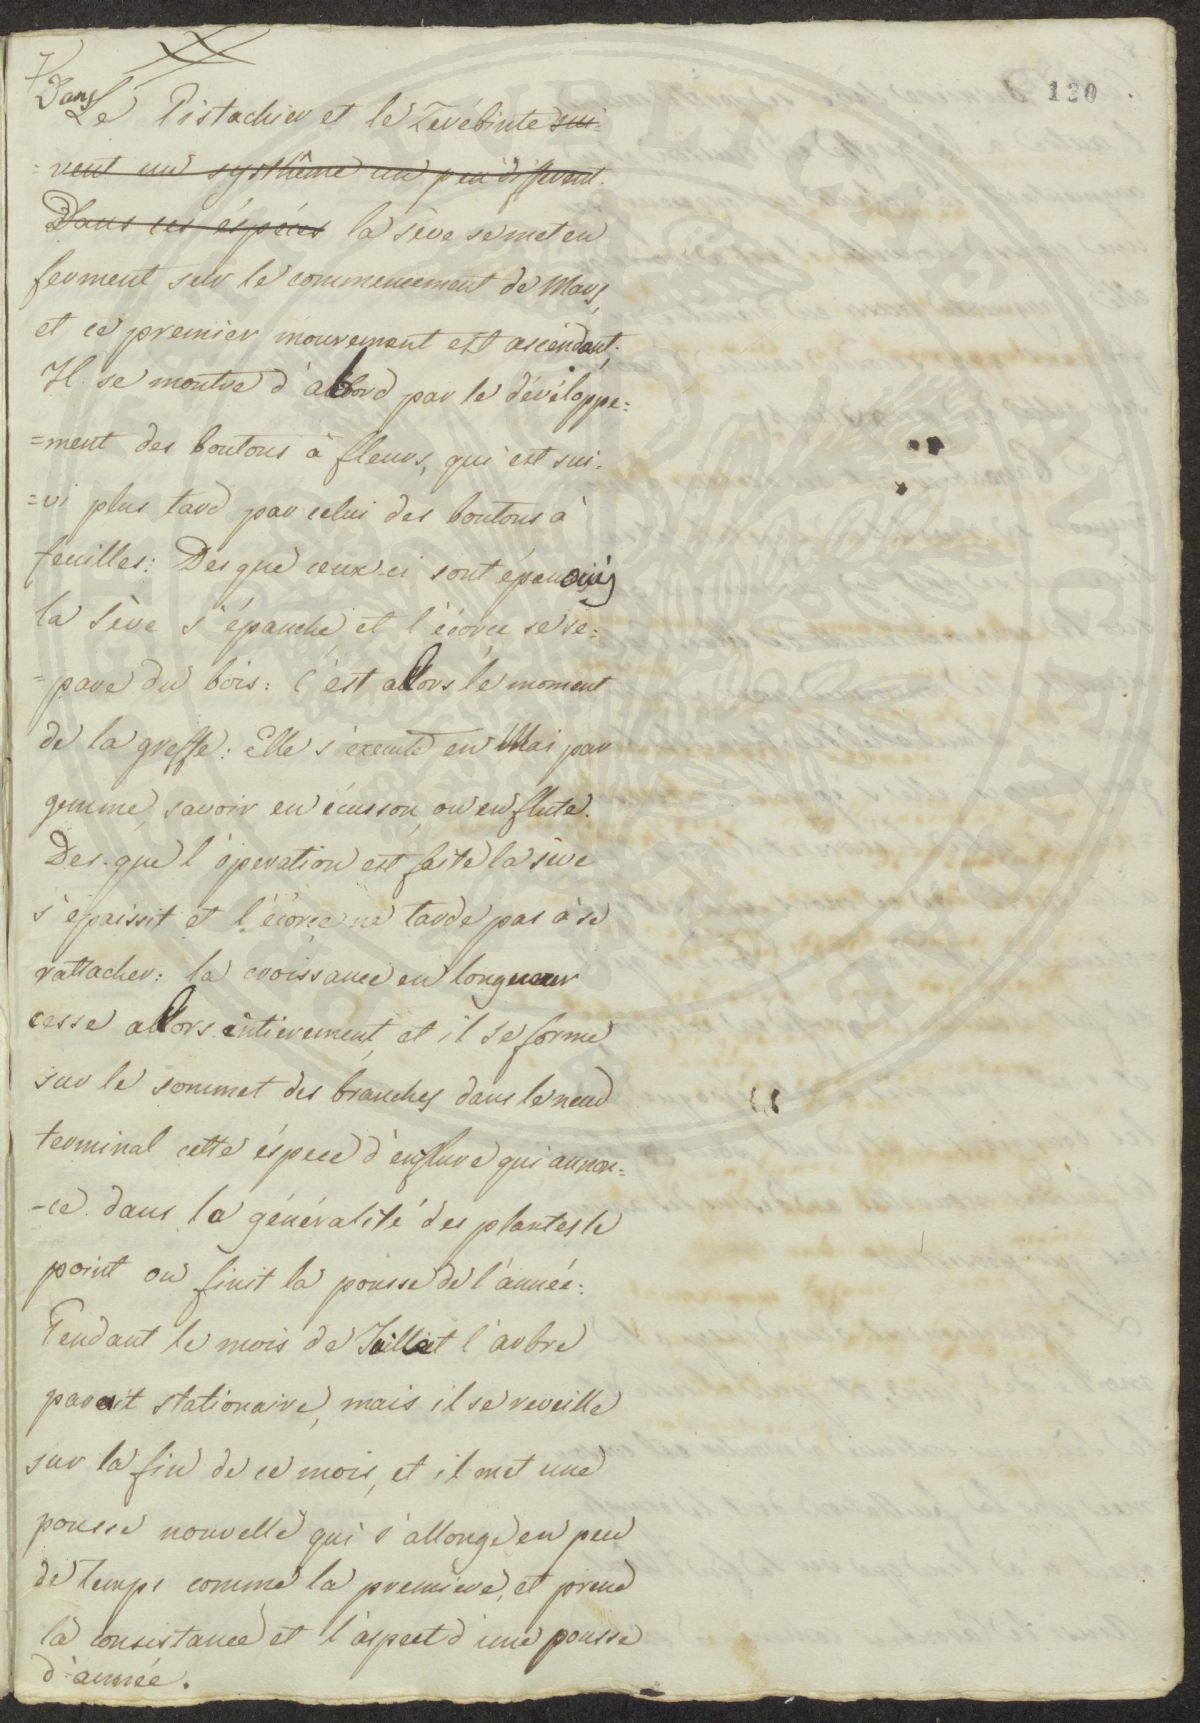 120
Dans
Le Pistachier et le Terébinte sui=
=vent un systhême un peu different.
Dans ces éspéces la sève se met en
ferment sur le commencement de Mars,
et ce premier mouvement est ascendant.
Il se montre d'abord par le dévéloppe=
=ment des boutons à fleurs, qui est sui=
=vi plus tard par celui des boutons à
feuilles: Des que ceux-ci sont épanouis
la sève s'épanche et l'écorce se se=
=pare du bois: C'est allors le moment
de la greffe: Elle s'execute en Mai par
gemme, savoir en écusson, ou en flute.
Des-que l'operation est faite la sève
s'épaissit et l'écorce ne tarde pas à se
rattacher: la croissance en longueur
cesse allors entierement, et il se forme
sur le sommet des branches dans le neud
terminal cette éspece d'enflure qui annon=
=ce dans la généralité des plantes le
point ou finit la pousse de l'année:
Pendant le mois de Juillet l'arbre
parait stationaire, mais il se reveille
sur la fin de ce mois, et il met une
pousse nouvelle qui s'allonge en peu
de temps comme la premiere, et prend
la consistance et l'aspect d'une pousse
d'année.